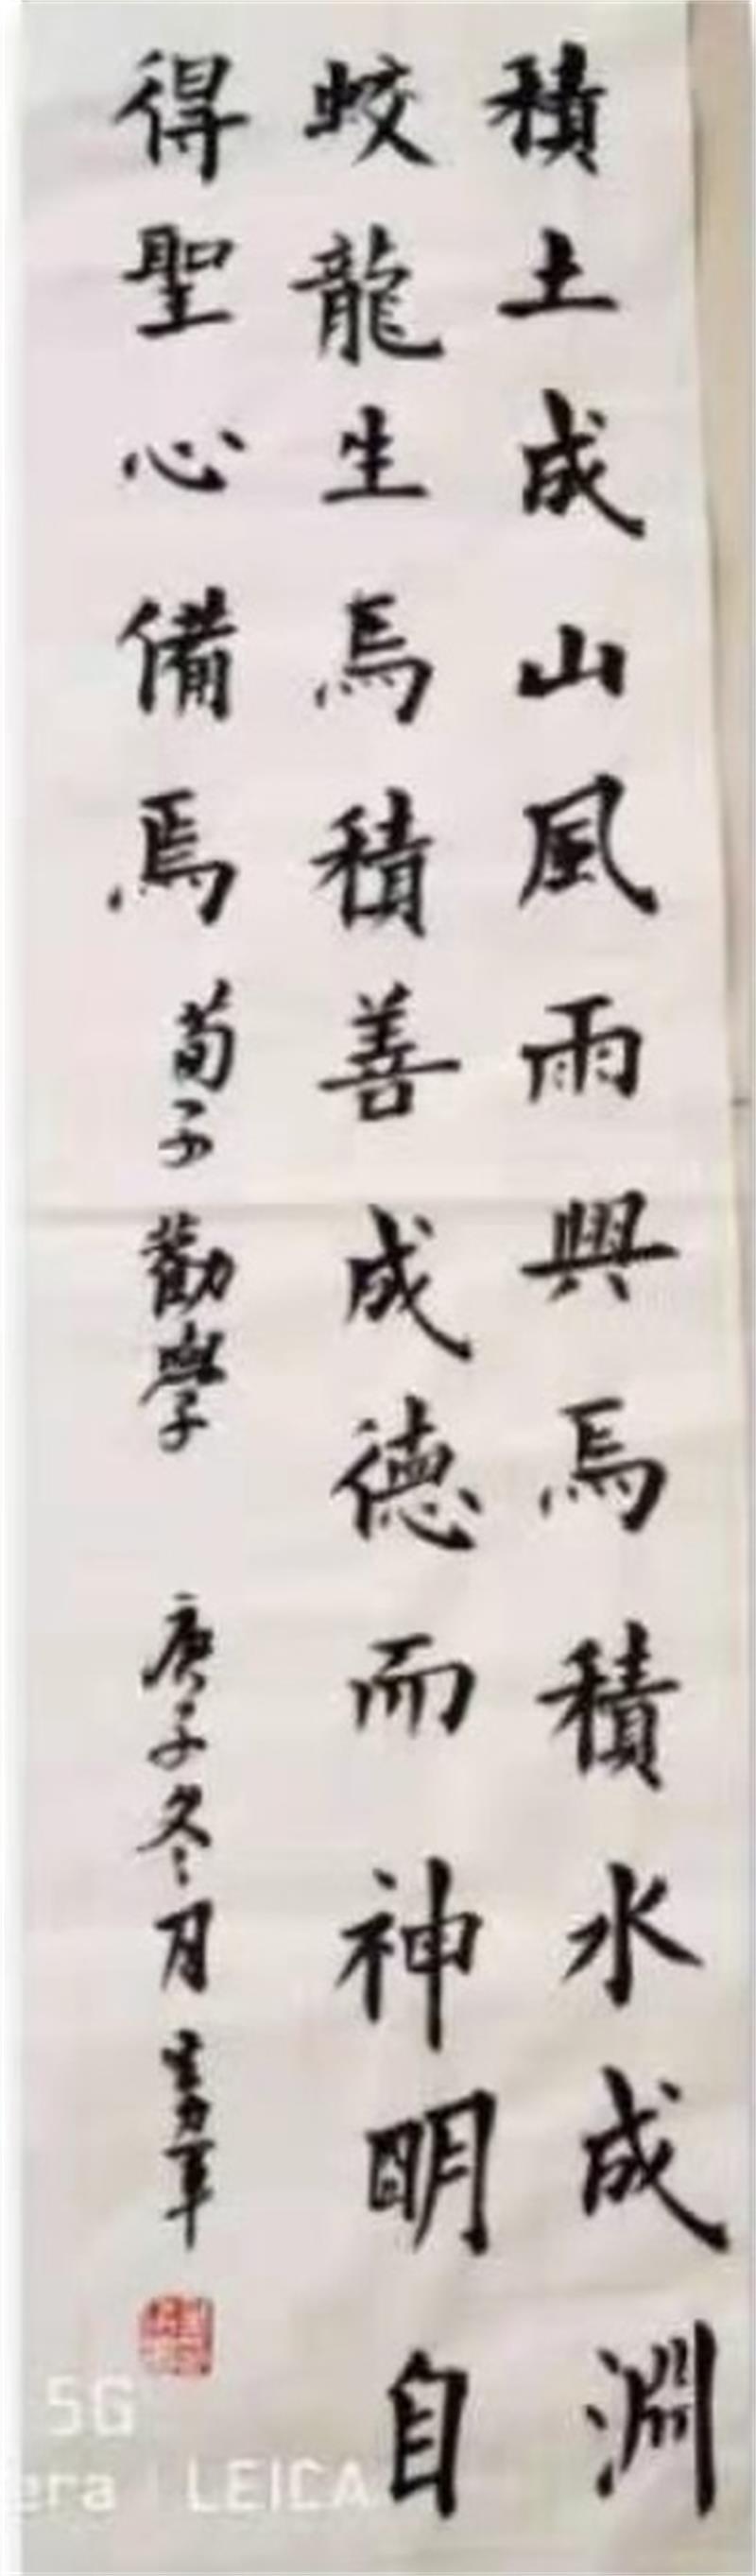 積土成山風雨興焉積水成淵
蛟龍生焉積善成德而神明自
得聖心備焉 荀子勸學 庚子冬月
5G
era | LEICA